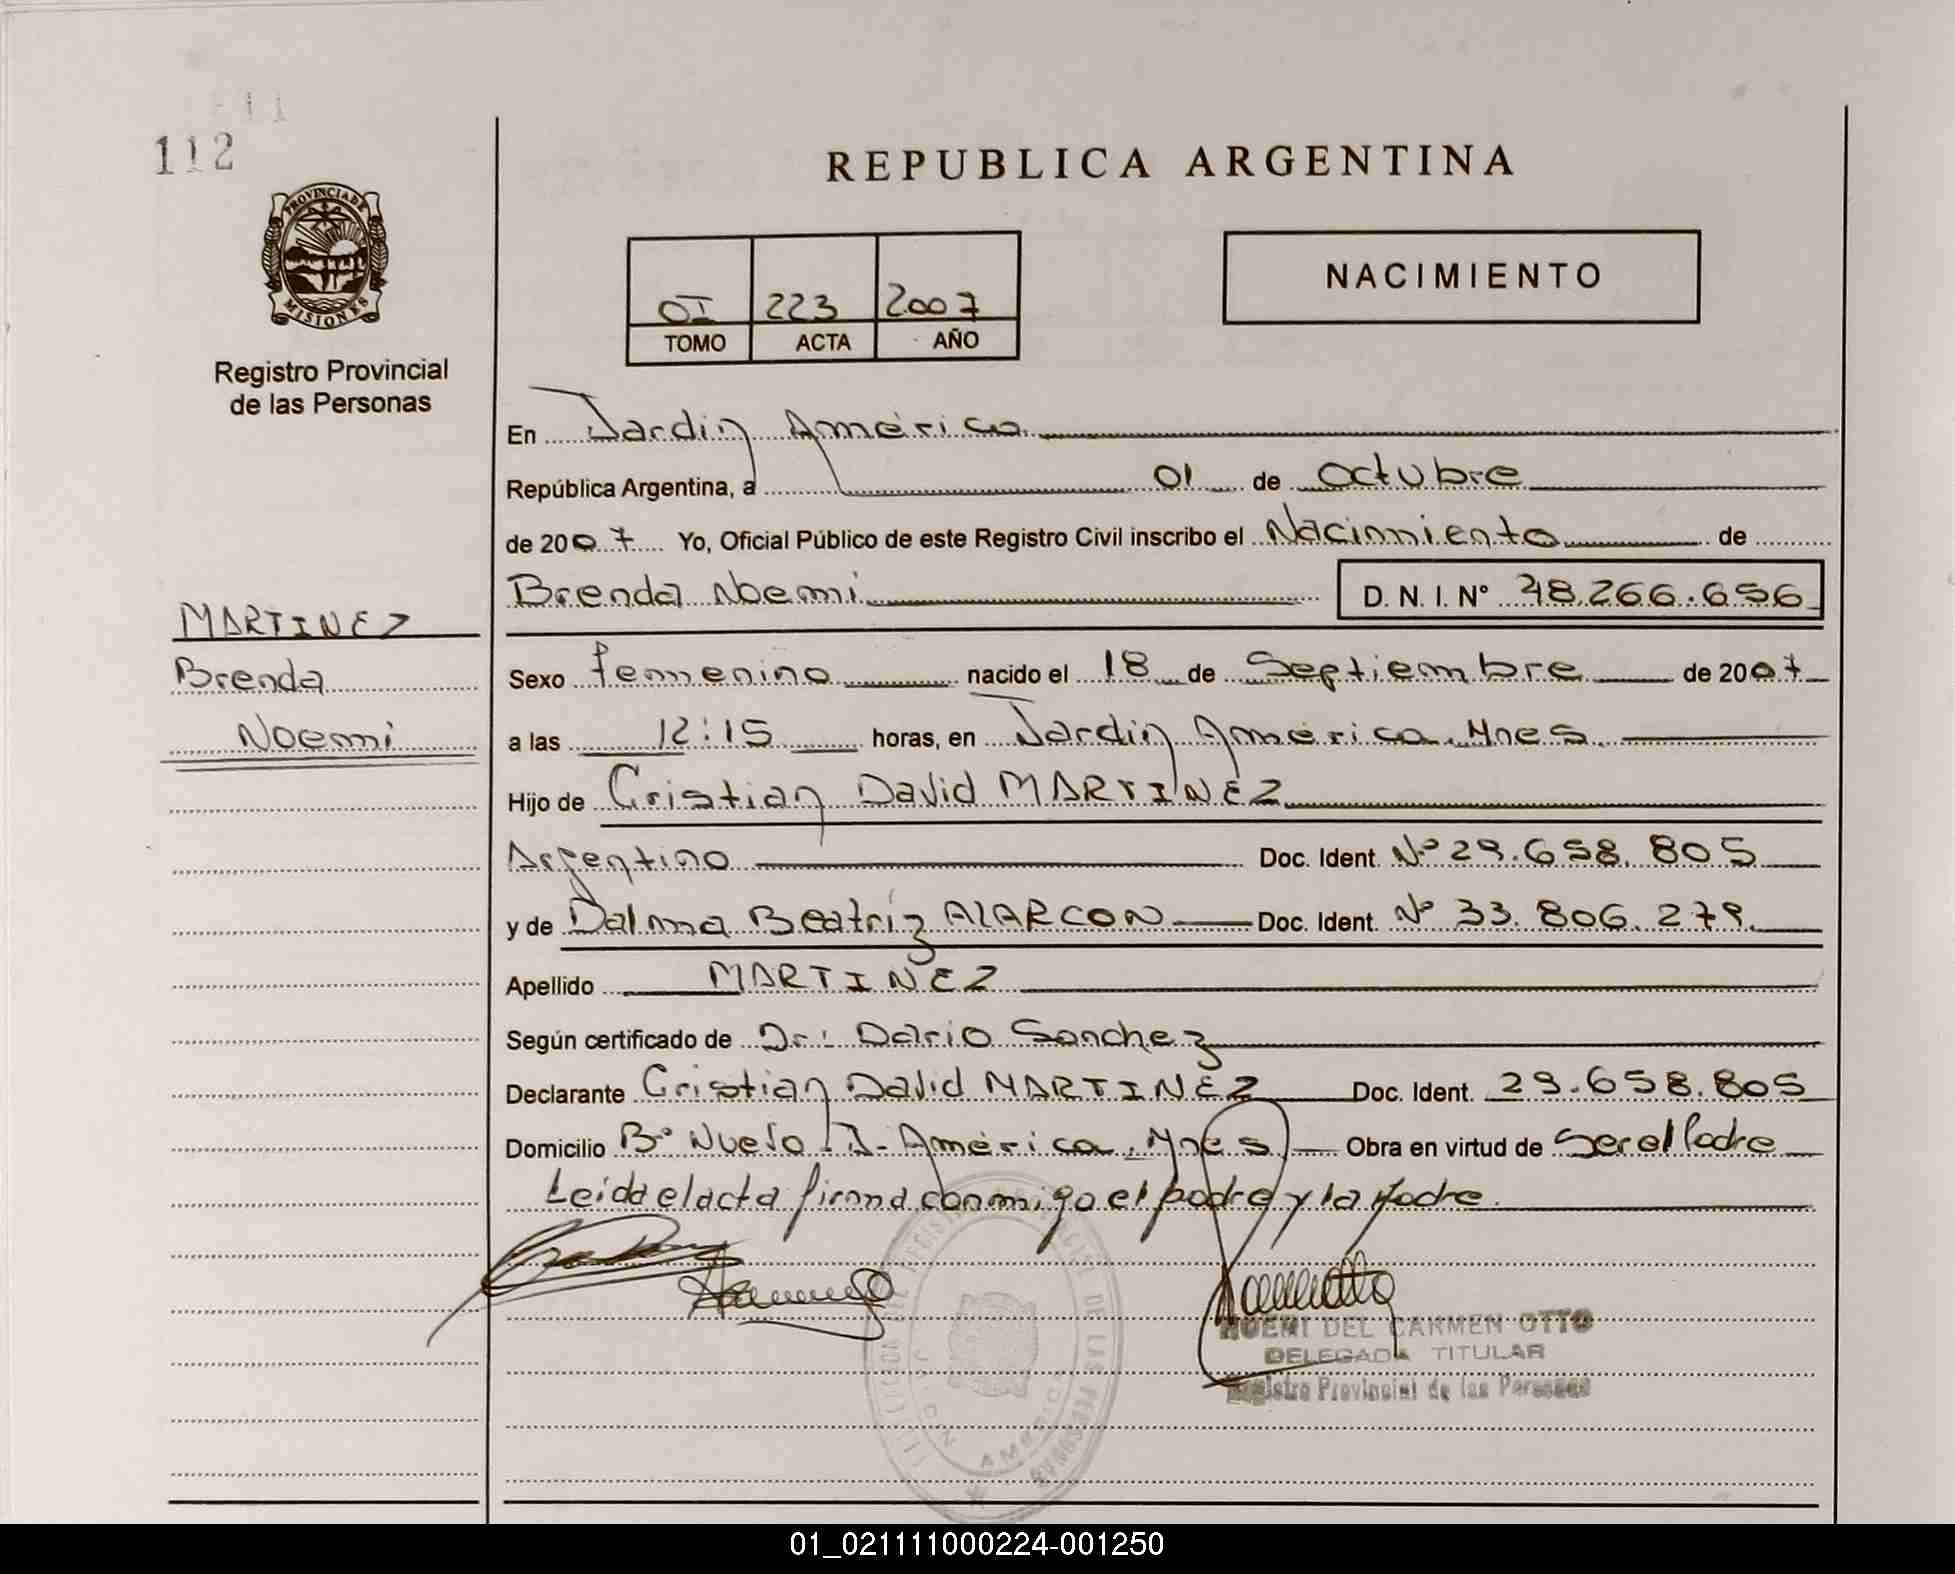 112
PROVINCIA DE
MISIONES
Registro Provincial
de las Personas
MARTINEZ
Brenda
Noemi
REPUBLICA ARGENTINA
OI 223 2007
TOMO ACTA AÑO
NACIMIENTO
En Jardin América
República Argentina, a 01 de Octubre
de 2007 Yo, Oficial Público de este Registro Civil inscribo el Nacimiento de
Brenda Noemi D. N. I. Nº 48.266.656
Sexo femenino nacido el 18 de Septiembre de 2007
a las 12:15 horas, en Jardin América. Mnes.
Hijo de Cristian David MARTINEZ
Argentino Doc. Ident. Nº 29.658.805
y de Dalma Beatriz ALARCON Doc. Ident. Nº 33.806.279.
Apellido MARTINEZ
Según certificado de Dr: Dario Sanchez
Declarante Cristian David MARTINEZ Doc. Ident. 29.658.805
Domicilio Bº Nuevo J. América. Mnes Obra en virtud de Ser el Padre
Leida el acta firma conmigo el padre y la Madre.
NOEMI DEL CARMEN OTTO
DELEGADA TITULAR
Registro Provincial de las Personas
01_021111000224-001250